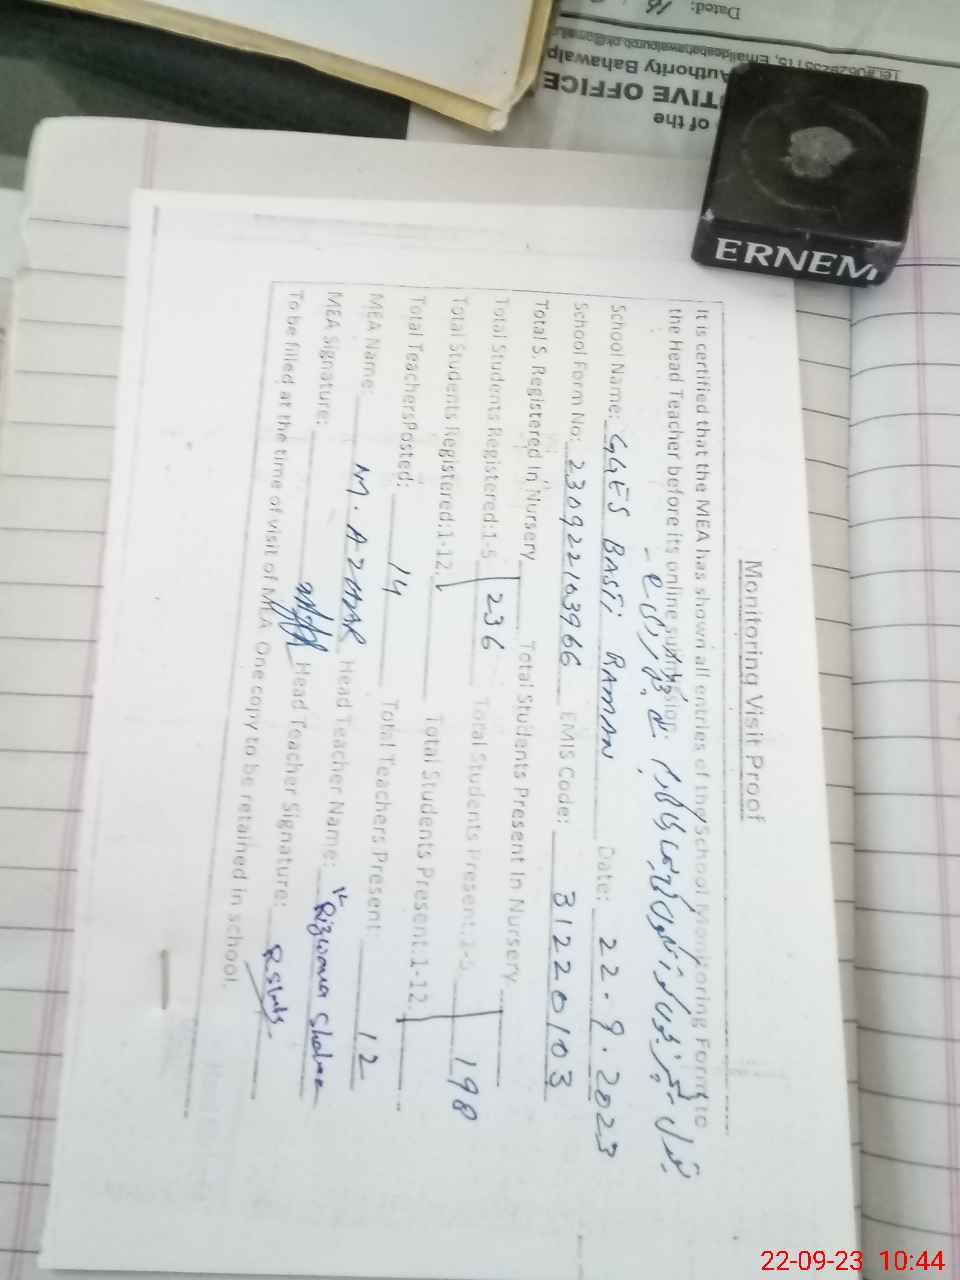 Dated:
Tel:#0629255115, Email:
Authority Bahawalp
TIVE OFFICE
of the
ERNEM
Monitoring Visit Proof
It is certified that the MEA has shown all entries of the School Monitoring Form to
the Head Teacher before its online submission.
School Name: GGES BASTI RAMAN Date: 22.9.2023
School Form No: 230922103966 EMIS Code: 31220103
Total S. Registered In Nursery Total Students Present In Nursery
Total Students Registered:1-5 236 Total Students Present:1-5 198
Total Students Registered:1-12 Total Students Present:1-12
Total TeachersPosted: 14 Total Teachers Present: 12
MEA Name: M. AZHAR Head Teacher Name: Rizwana
MEA Signature: Head Teacher Signature:
To be filled at the time of visit of MEA. One copy to be retained in school.
22-09-23 10:44